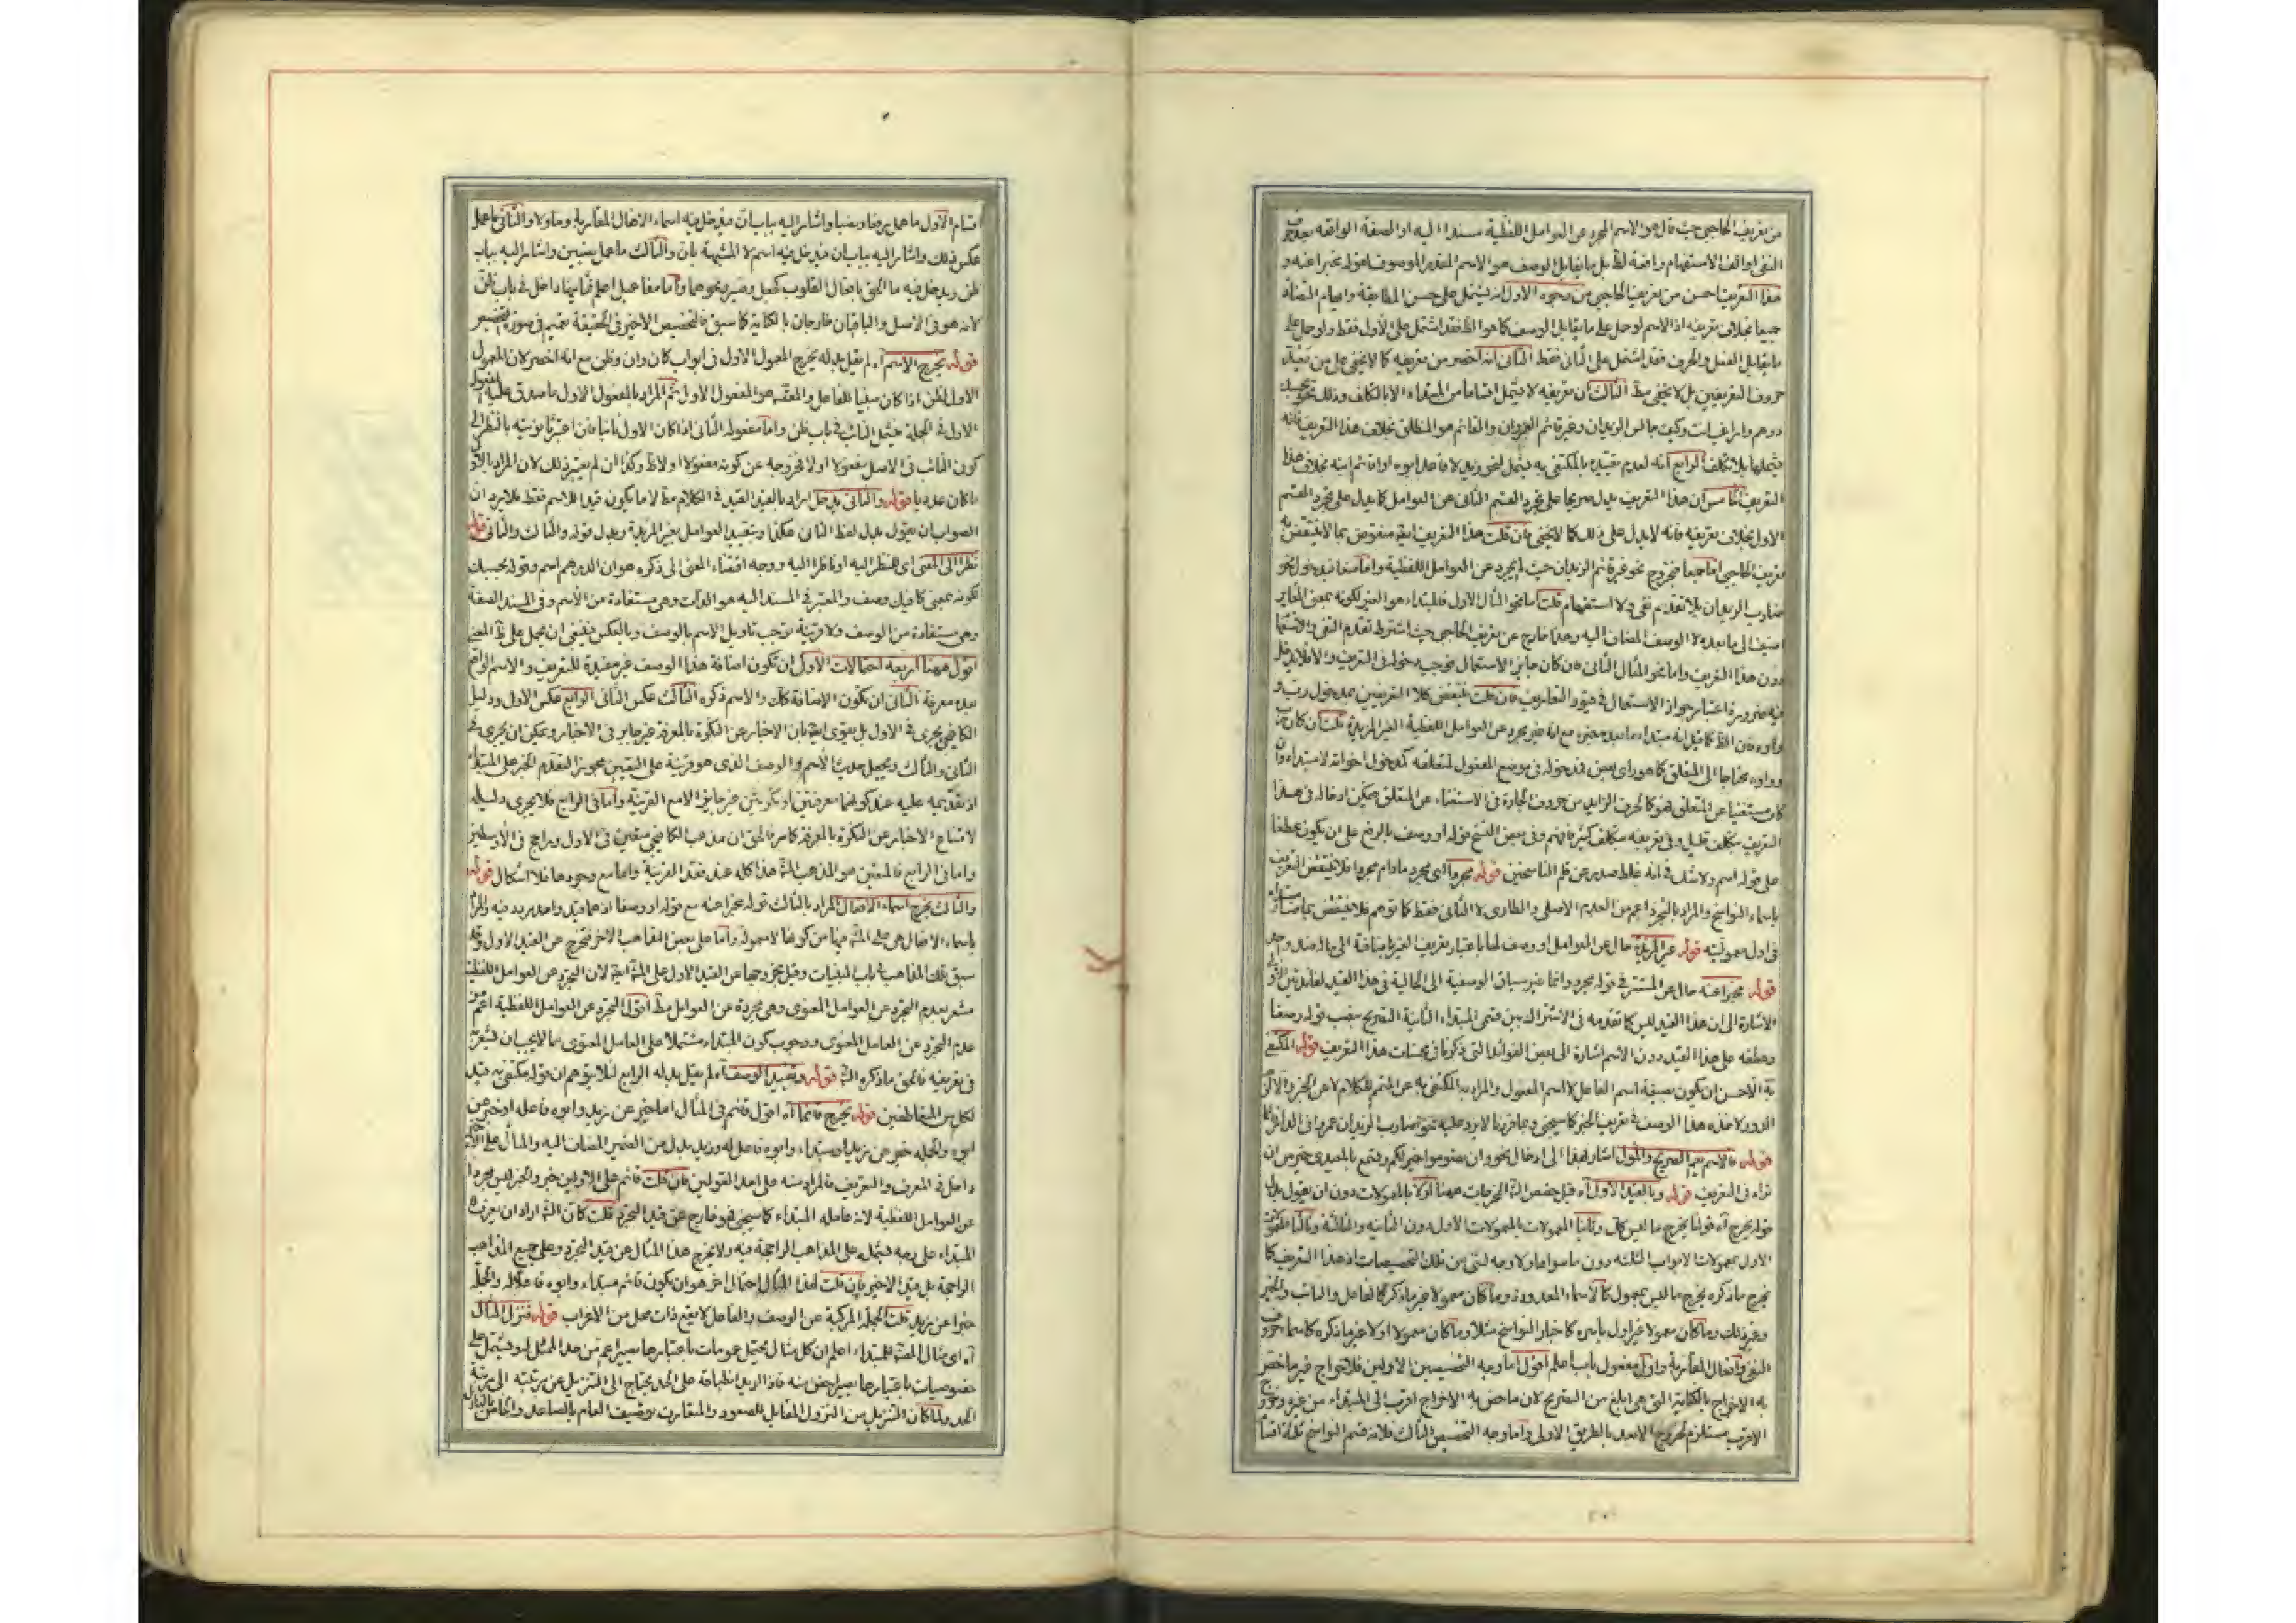 من تعريف الحاجبي حيث قال هو الاسم المجرد عن العوامل اللفظية مسندا اليه او الصفة الواقعة بعد حرف
النفى او الف الاستفهام رافعة لظ بل ما يقابل الوصف هو الاسم المقدر الموصوف بقوله مخبرا عنه و
هذا التعريف احسن من تعريف الحاجبي من وجوه الاول انه يشتمل على حسن المطابقة وايهام التضاد
جميعا بخلاف تعريفه اذ الاسم لو حمل على ما يقابل الوصف كما هو الظ فقد اشتمل على الاول فقط ولو حمل على
ما يقابل الفعل والحرف فقد اشتمل على الثانى فقط الثانى انه اخصر من تعريفه كما لا يخفى على من تعقد
حروف التعريفين بل لا يخفى مط الثالث ان تعريفه لا يشمل اقساما من المبتداء الا بالتكلف وذلك نحو بحسبك
درهم واراغب انت وكيف جالس الزيدان وغير قائم العمروان والقائم هو المنطلق بخلاف هذا التعريف فانه
يشملها بلا تكلف الرابع انه لعدم تقييده بالمكتفى به يشمل لنحو زيد لا قاعد ابوه او قائم ابنه بخلاف هذا
التعريف الخامس ان هذا التعريف يدل صريحا على تجرد القسم الثانى عن العوامل كما يدل على تجرد القسم
الاول بخلاف تعريفه فانه لا يدل على ذلك كما لا يخفى فان قلت هذا التعريف ايضا منقوض بما لا ينتقض به
تعريف الحاجبي اما جمعا فبخروج نحو غير قائم الزيدان حيث لم يجرد عن العوامل اللفظية واما منعا فبدخول نحو
ضارب الزيدان بلا تقديم نفى ولا استفهام قلت اما نحو المثال الاول فالمبتداء هو الغير لكونه بمعنى المغاير
اضيف الى ما بعده لا الوصف المضاف اليه وهذا خارج عن تعريف الحاجبي حيث اشترط تقدم النفى والاستفهام
دون هذا التعريف واما نحو المثال الثانى فان كان جايز الاستعمال فيجب دخوله فى التعريف والا فلا يدخل
فيه ضرورة اعتبار جواز الاستعمال فى قيود التعاريف فان قلت ينتقض كلا التعريفين بمدخول رب و
واوه فان الظ كما قيل انه مبتداء وما بعده خبره مع انه غير مجرد عن العوامل اللفظية الغير المزيدة قلت ان كان رب
وواوه محتاجا الى المتعلق كما هو راى بعض فمدخوله فى موضع المفعول لمتعلقه كمدخول اخواته لا مبتداء وان
كان مستغنيا عن المتعلق فهو كالحرف الزايد من حروف الجارة فى الاستغناء عن المتعلق فيمكن ادخاله فى هذا
التعريف بتكلف قليل وفى تعريفه بتكلف كثير فافهم وفى بعض النسخ قوله او وصف بالرفع على ان يكون عطفا
على قوله اسم ولا شك فى انه غلط صدر عن قلم الناسخين قوله مجردا اى مجرد ما دام مجردا فلا ينتقض التعريف
باسماء النواسخ والمراد بالتجرد اعم من العدم الاصلى والطارى لا الثانى فقط كما توهم فلا ينتقض بما صار مبتداء
فى اول معموليته قوله غير المزيدة حال عن العوامل او وصف لها باعتبار تعريف الغير باضافة الى ماله ضد واحد
قوله مخبرا عنه حال عن المستتر فى قوله مجرد وانما غير سياق الوصفية الى الحالية فى هذا القيد لفايدتين الاولى
الاشارة الى ان هذا القيد ليس كما تقدمه فى الاشتراك بين قسمى المبتداء الثانية التصريح بنصب قوله وصفا
وعطفه على هذا القيد دون الاسم اشارة الى بعض الفوائد التى ذكرنا فى محسنات هذا التعريف قوله المكتفى
به الاحسن ان يكون بصيغة اسم الفاعل لا اسم المفعول والمراد به المكتفى به عن المتمم للكلام لا عن الخبر والا لزم
الدور لاخذ هذا الوصف فى تعريف الخبر كما سيجئ وبما قررنا لا يرد عليه نحو اضارب الزيدان عمروا فى الدار
قوله فالاسم يعم الصريح والمؤول اشار بهذا الى ادخال نحو وان تصوموا خير لكم وتسمع بالمعيدى خير من ان
تراه فى التعريف قوله وبالقيد الاول آه قيل خصص الش المخرجات ههنا اولا بالمعمولات دون ان يقول بدل
قوله يخرج آه قولنا يخرج ما ليس كك وثانيا المعمولات بالمعمولات الاول دون الثانيه والثالثة وثالثا المعمولات
الاول بمعمولات الابواب الثلثه دون ما سواها ولا وجه لشئ من تلك التخصيصات اذ هذا التعريف كما
يخرج ما ذكره يخرج ما ليس بمعمول كالاسماء المعدودة وما كان معمولا غير ما ذكر كالفاعل والنائب والخبر
وغير ذلك وما كان معمولا غير اول باسره كاخبار النواسخ مثلا وما كان معمولا اولا غير ما ذكره كاسماء حروف
النفى وافعال المقاربة واول مفعول باب اعلم اقول اما وجه التخصيصين الاولين فلاخراج غير ما خص
به الاخراج بالكناية التى هى ابلغ من التصريح لان ما خص به الاخراج اقرب الى المبتداء من غيره وخروج
الاقرب مستلزم لخروج الابعد بالطريق الاولى واما وجه التخصيص الثالث فلانه قسم النواسخ ثلاثة اقسا
اقسام الاول ما عمل رفعا ونصبا واشار اليه بباب كان فيدخل فيه اسماء الافعال المقاربة وما ولا والثانى ما عمل
عكس ذلك واشار اليه بباب ان فيدخل فيه اسم لا المشبهة بان والثالث ما عمل نصبين واشار اليه بباب
ظن ويدخل فيه ما الحق بافعال القلوب كجعل وصير ونحوهما واما مفاعيل اعلم فما بينها داخل فى باب ظن
لانه هو فى الاصل والباقيان خارجان بالكناية كما سبق فالتخصيص الاخير فى الحقيقة تعميم فى صورة التخصيص
قوله يخرج الاسم آه لم يقل بدله يخرج المعمول الاول فى ابواب كان وان وظن مع انه اخصر لان المعمول
الاول لظن اذا كان مبنيا للفاعل والمعتقد هو المفعول الاول ثم المراد بالمفعول الاول ما صدق عليه المفعول
الاول فى الجملة فيشمل النائب فى باب ظن واما مفعوله الثانى اذا كان الاول نائبا فان اعتبر ثانويته بالنظر الى
كون النائب فى الاصل مفعولا اولا فخروجه عن كونه مفعولا اولا ظ وكذا ان لم يعتبر ذلك لان المراد بالاول
ما كان عديا قوله والثانى بدخل اراد بالقيد القيد فى الكلام مط لا ما يكون قيدا للاسم فقط فلا يرد ان
الصواب ان يقول بدل لفظ الثانى هكذا وبتقييد العوامل بغير المزيدة وبدل قوله والثالث والثانى قوله
نظرا الى المعنى اى للنظر اليه او ناظرا اليه ووجه اقتضاء المعنى الى ذكره هو ان الدرهم اسم وقوله بحسبك
لكونه بمعنى كافيك وصف والمعتبر فى المسند اليه هو الذات وهى مستفادة من الاسم وفى المسند الصفة
وهى مستفادة من الوصف ولا قرينة توجب تاويل الاسم بالوصف وبالعكس فينبغى ان يحمل على ظ المعنى
اقول ههنا اربعه احتمالات الاول ان تكون اضافة هذا الوصف غير مفيدة للتعريف والاسم الواقع
بعده معرفة الثانى ان تكون الاضافة كك والاسم نكرة الثالث عكس الثانى الرابع عكس الاول ودليل
الكافيجى يجرى فى الاول بل يقوى ايضا بان الاخبار عن النكرة بالمعرفة غير جايز فى الاخبار ويمكن ان يجرى فى
الثانى والثالث ويجعل حديث الاسم والوصف الذى هو قرينة على التعيين مجوزا لتقدم الخبر على المبتداء
اذ تقديمه عليه عند كونهما معرفتين او نكرتين غير جايز الا مع القرينة واما فى الرابع فلا يجرى دليله
لامتناع الاخبار عن النكرة بالمعرفة كما مر فالحق ان مذهب الكافيجى متعين فى الاول وراجح فى الاوسطين
واما فى الرابع فالمتعين هو المذهب الش هذا كله عند فقد القرينة واما مع وجودها فلا اشكال قوله
والثالث يخرج اسماء الافعال المراد بالثالث قوله مخبرا عنه مع قوله او وصفا اذ هما قيد واحد يريد فيه والمراد
باسماء الافعال هى على المش فيها من كونها لا معمولة واما على بعض المذاهب الاخر فتخرج عن القيد الاول وقد
سبق تلك المذاهب فى باب المبنيات وقيل بخروجها عن القيد الاول على المش ايضا لان التجرد عن العوامل اللفظية
مشعر بعدم التجرد عن العوامل المعنوى وهى مجردة عن العوامل مط اقول التجرد عن العوامل اللفظية اعم من
عدم التجرد عن العامل المعنوى ووجوب كون المبتداء مشتملا على العامل المعنوى مما لا يجب ان يشعر به
فى تعريفه فالحق ما ذكره الش قوله وتقييد الوصف آه لم يقل بدله الرابع لئلا يتوهم ان قوله مكتفى به قيد
لكل من المتعاطفين قوله يخرج قائما آه اقول قائم فى المثال اما خبر عن زيد وابوه فاعله او خبر عن
ابوه والجملة خبر عن زيد او مبتداء وابوه فاعل له وزيد بدل من الضمير المضاف اليه والمثال على
داخل فى المعرف والتعريف فالمراد منه على احد القولين فان قلت قائم على الاولين خبر والخبر ليس مجردا
عن العوامل اللفظية لانه عامله المبتداء كما سيجئ فهو خارج عن قيد التجرد قلت كان الش اراد ان يعرف
المبتداء على وجه يشمله على المذاهب الراجحة فيه ولا يخرج هذا المثال عن قيد التجرد على جميع المذاهب
الراجحة بل قيد الاخير فان قلت لهذا المثال احتمال اخر هو ان يكون قائم مبتداء وابوه فاعلا له والجملة
خبرا عن زيد قلت الجملة المركبة عن الوصف والفاعل لا يقع ذات محل من الاعراب قوله فنزل المثال
آه اى مثال المص للمبتداء اعلم ان كل مثال يحتمل عمومات باعتبارها يصير اعم من حد الممثل له ويشتمل على
خصوصيات باعتبارها يصير اخص منه فاذا اريد انطباقه على الحد يحتاج الى التنزيل عن مرتبته الى مرتبة
الحد ولما كان التنزيل من النزول المقابل للصعود والمتعارف توصيف العام بالصاعد والخاص بالنازل